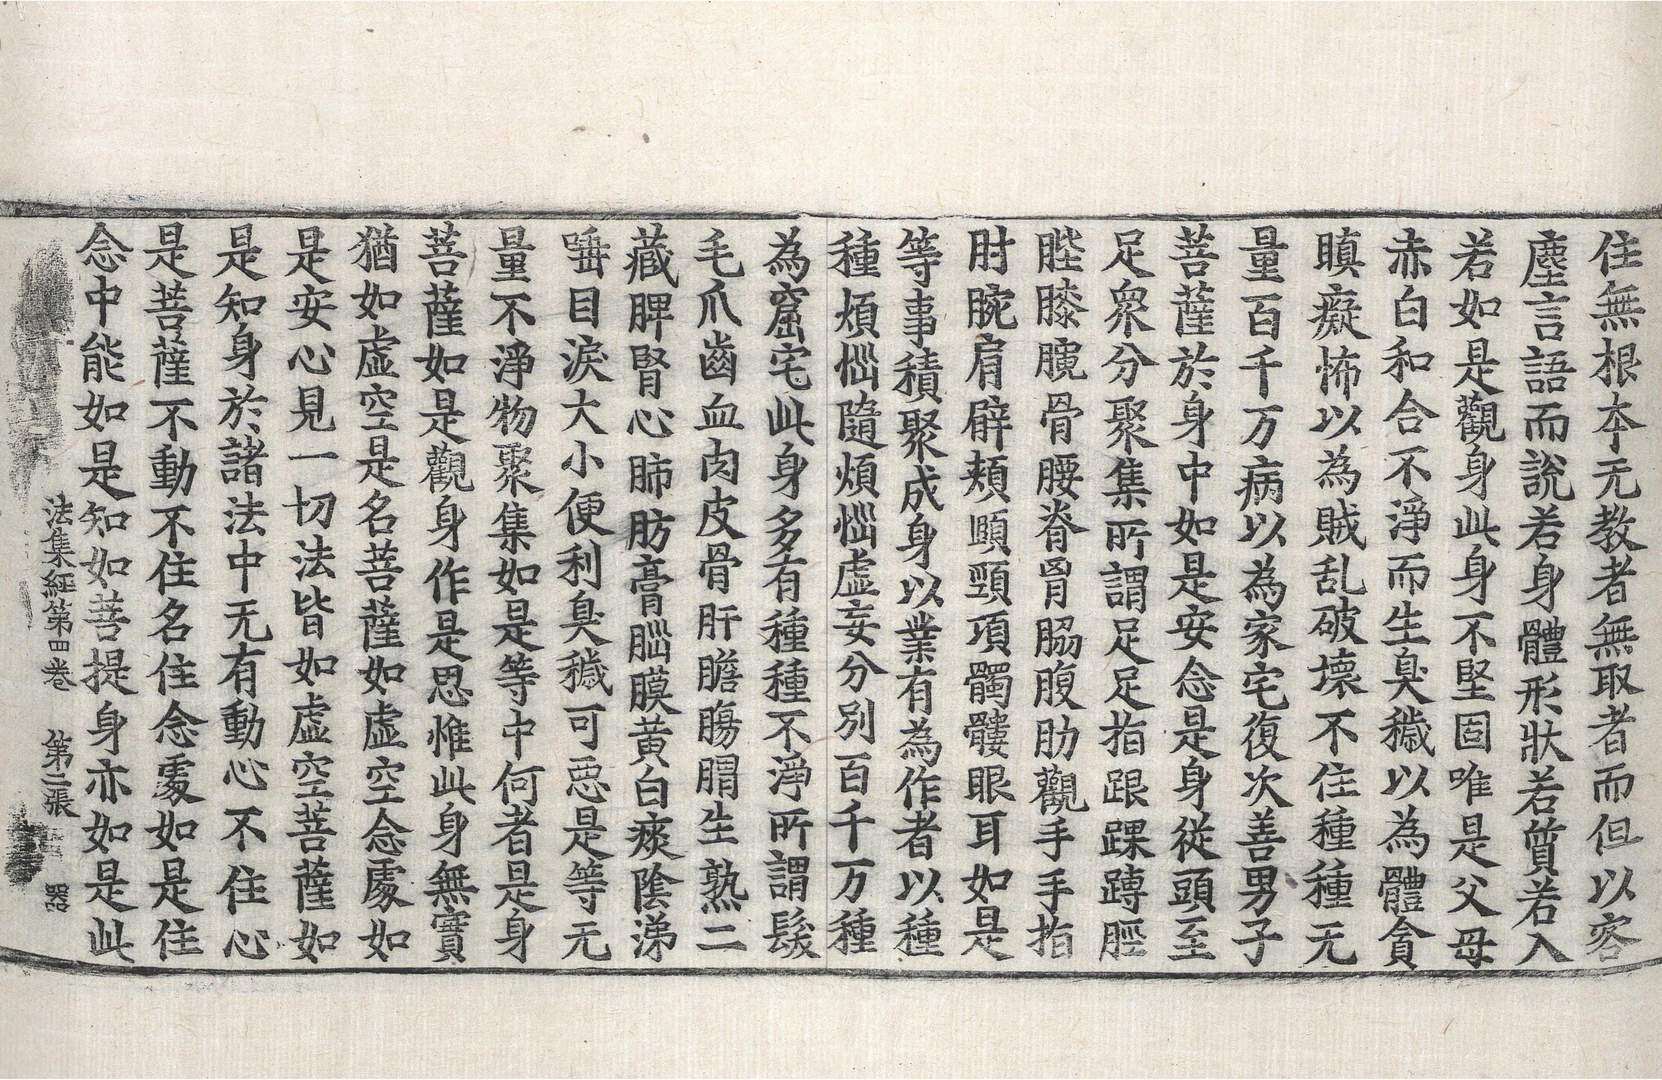 住無根本无教者無取者而但以客
塵言語而說若身體形狀若質若入
若如是觀身此身不堅固唯是父母
赤白和合不淨而生臭穢以為體貪
瞋癡怖以為賊乱破壞不住種種无
量百千万病以為家宅復次善男子
菩薩於身中如是安念是身從頭至
足眾分聚集所謂足足指跟踝蹲脛
膝髖骨腰脊𦛗脇腹肋觀手手指
肘腕肩臂頰頤頸項髑髏眼耳如是
等事積聚成身以業有為作者以種
種煩惱隨煩惱虛妄分別百千万種
為窟宅此身多有種種不淨所謂髮
毛爪齒血肉皮骨肝膽膓胃生熟二
藏脾腎心肺肪膏腦膜黃白痰陰涕
唾目淚大小便利臭穢可惡是等无
量不淨物聚集如是等中何者是身
菩薩如是觀身作是思惟此身無實
猶如虛空是名菩薩如虛空念處如
是安心見一切法皆如虛空菩薩如
是知身於諸法中无有動心不住心
是菩薩不動不住名住念處如是住
念中能如是知如菩提身亦如是此
法集經第四卷 第二張 器